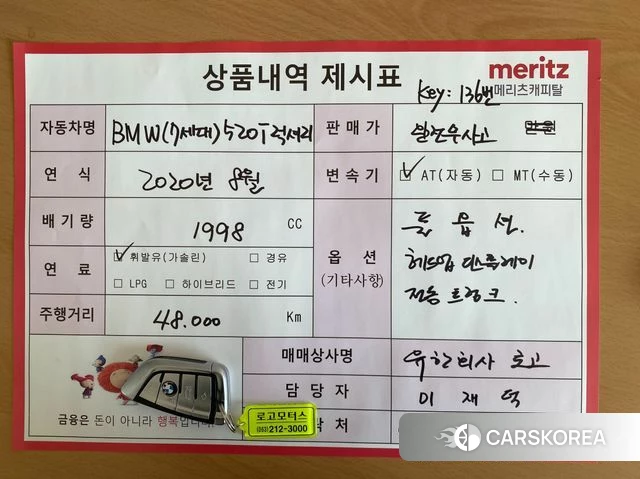 상품내역 제시표
meritz
메리츠캐피탈
Key: 136번
자동차명 BMW(7세대) 520i 럭셔리
판매가 만원
연식 2020년 8월
변속기 AT(자동) MT(수동)
배기량 1998 CC
옵션
(기타사항)
풀 옵션.
헤드업 디스플레이
전동 트렁크.
연료 휘발유(가솔린) 경유
LPG 하이브리드 전기
주행거리 48.000 Km
매매상사명 유한회사 로고
담당자 이재덕
락처
금융은 돈이 아니라 행복입니다
로고모터스
(063)212-3000
CARSKOREA